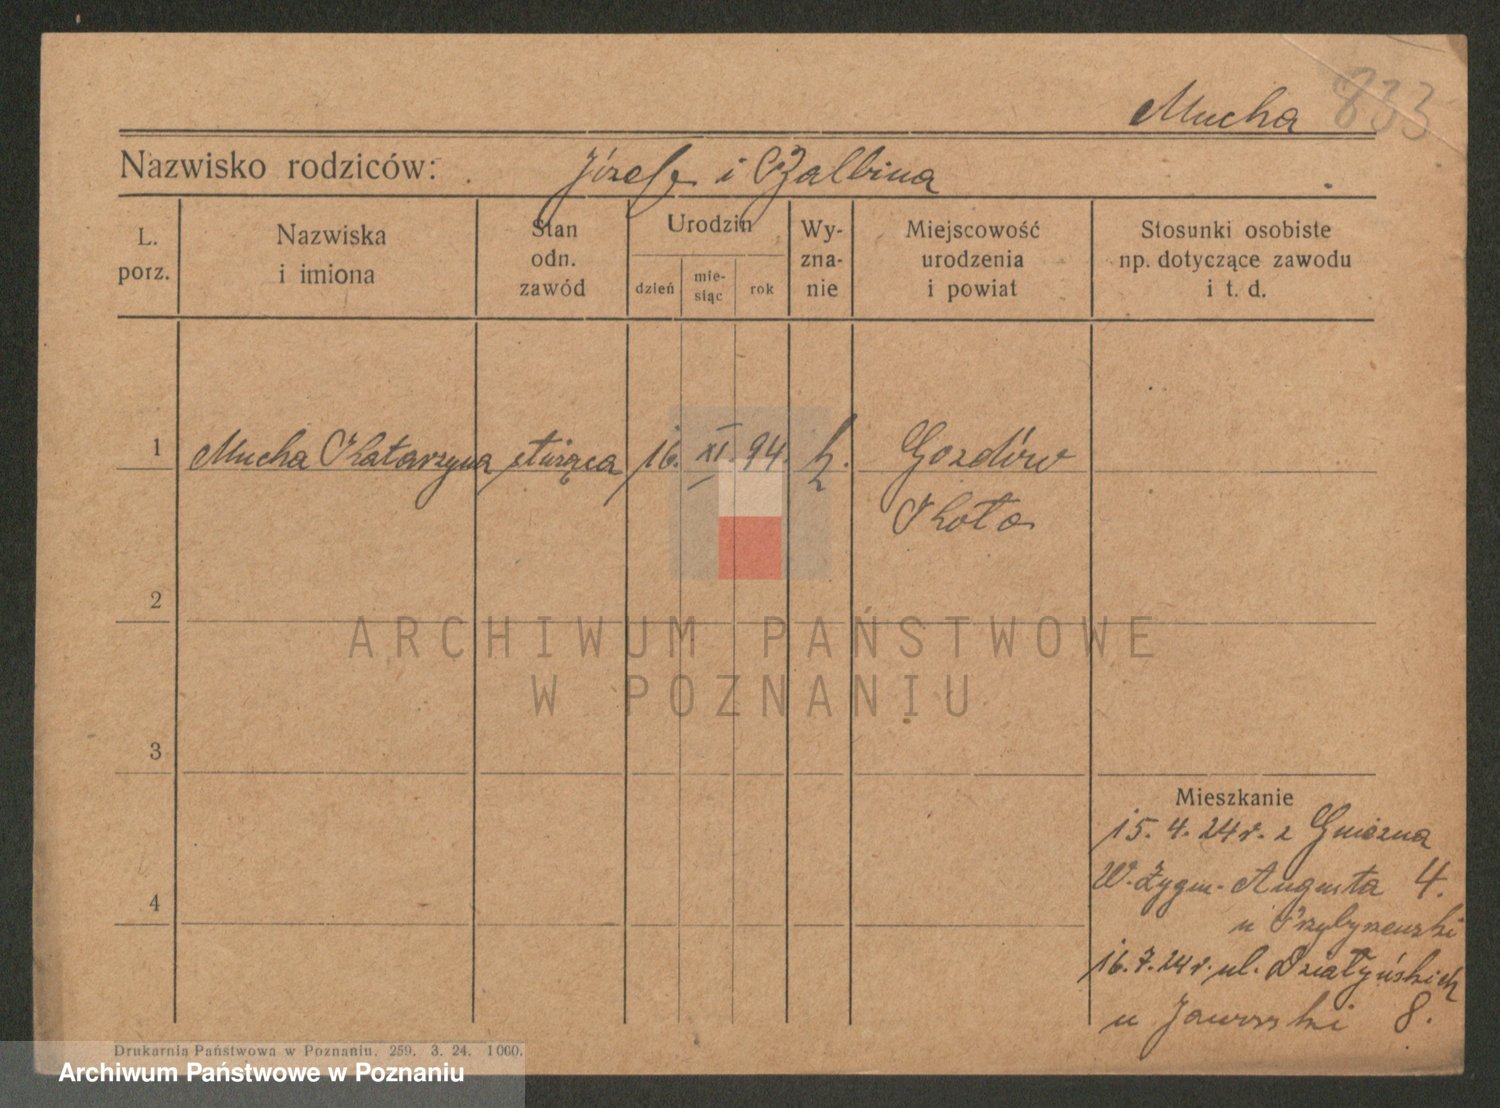 Mucha 833
Nazwisko rodziców: Józef i Balbina
L. porz.
Nazwiska i imiona
Stan odn. zawód
Urodzin
dzień
mie-siąc
rok
Wy-zna-nie
Miejscowość urodzenia i powiat
Stosunki osobiste np. dotyczące zawodu i t. d.
1 Mucha Katarzyna służąca 16. XI. 94. k. Gozdów
Koło
2
ARCHIWUM PAŃSTWOWE
W POZNANIU
3
Mieszkanie
15. 4. 24 r. z Gniezna
W. Zygm. Augusta 4.
u Przybyszewski
4
16. 7. 24 r. ul. Działyńskich
u Jaworski 8.
Drukarnia Państwowa w Poznaniu. 259. 3. 24. 1000.
Archiwum Państwowe w Poznaniu